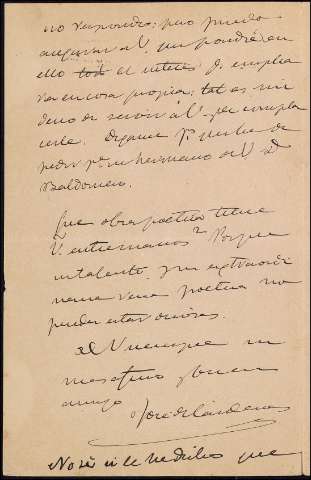 no responde; pero puedo
asegurar a V. que pondré en
ello todo el interés q. emplea
ria en cosa propia; tal es mi
deseo de servir á V. y de compla
cerle. Digame V. que he de
pedir pª. su hermano de V. D.
Baldomero.
Que obra poetica tiene
V. entre manos? Porque
su talento y su extraordi
naria vena poetica no
pueden estar ociosas.
de V siempre su
mas afmo. y buen
amigo
José de Cárdenas
No sé si le he dicho que